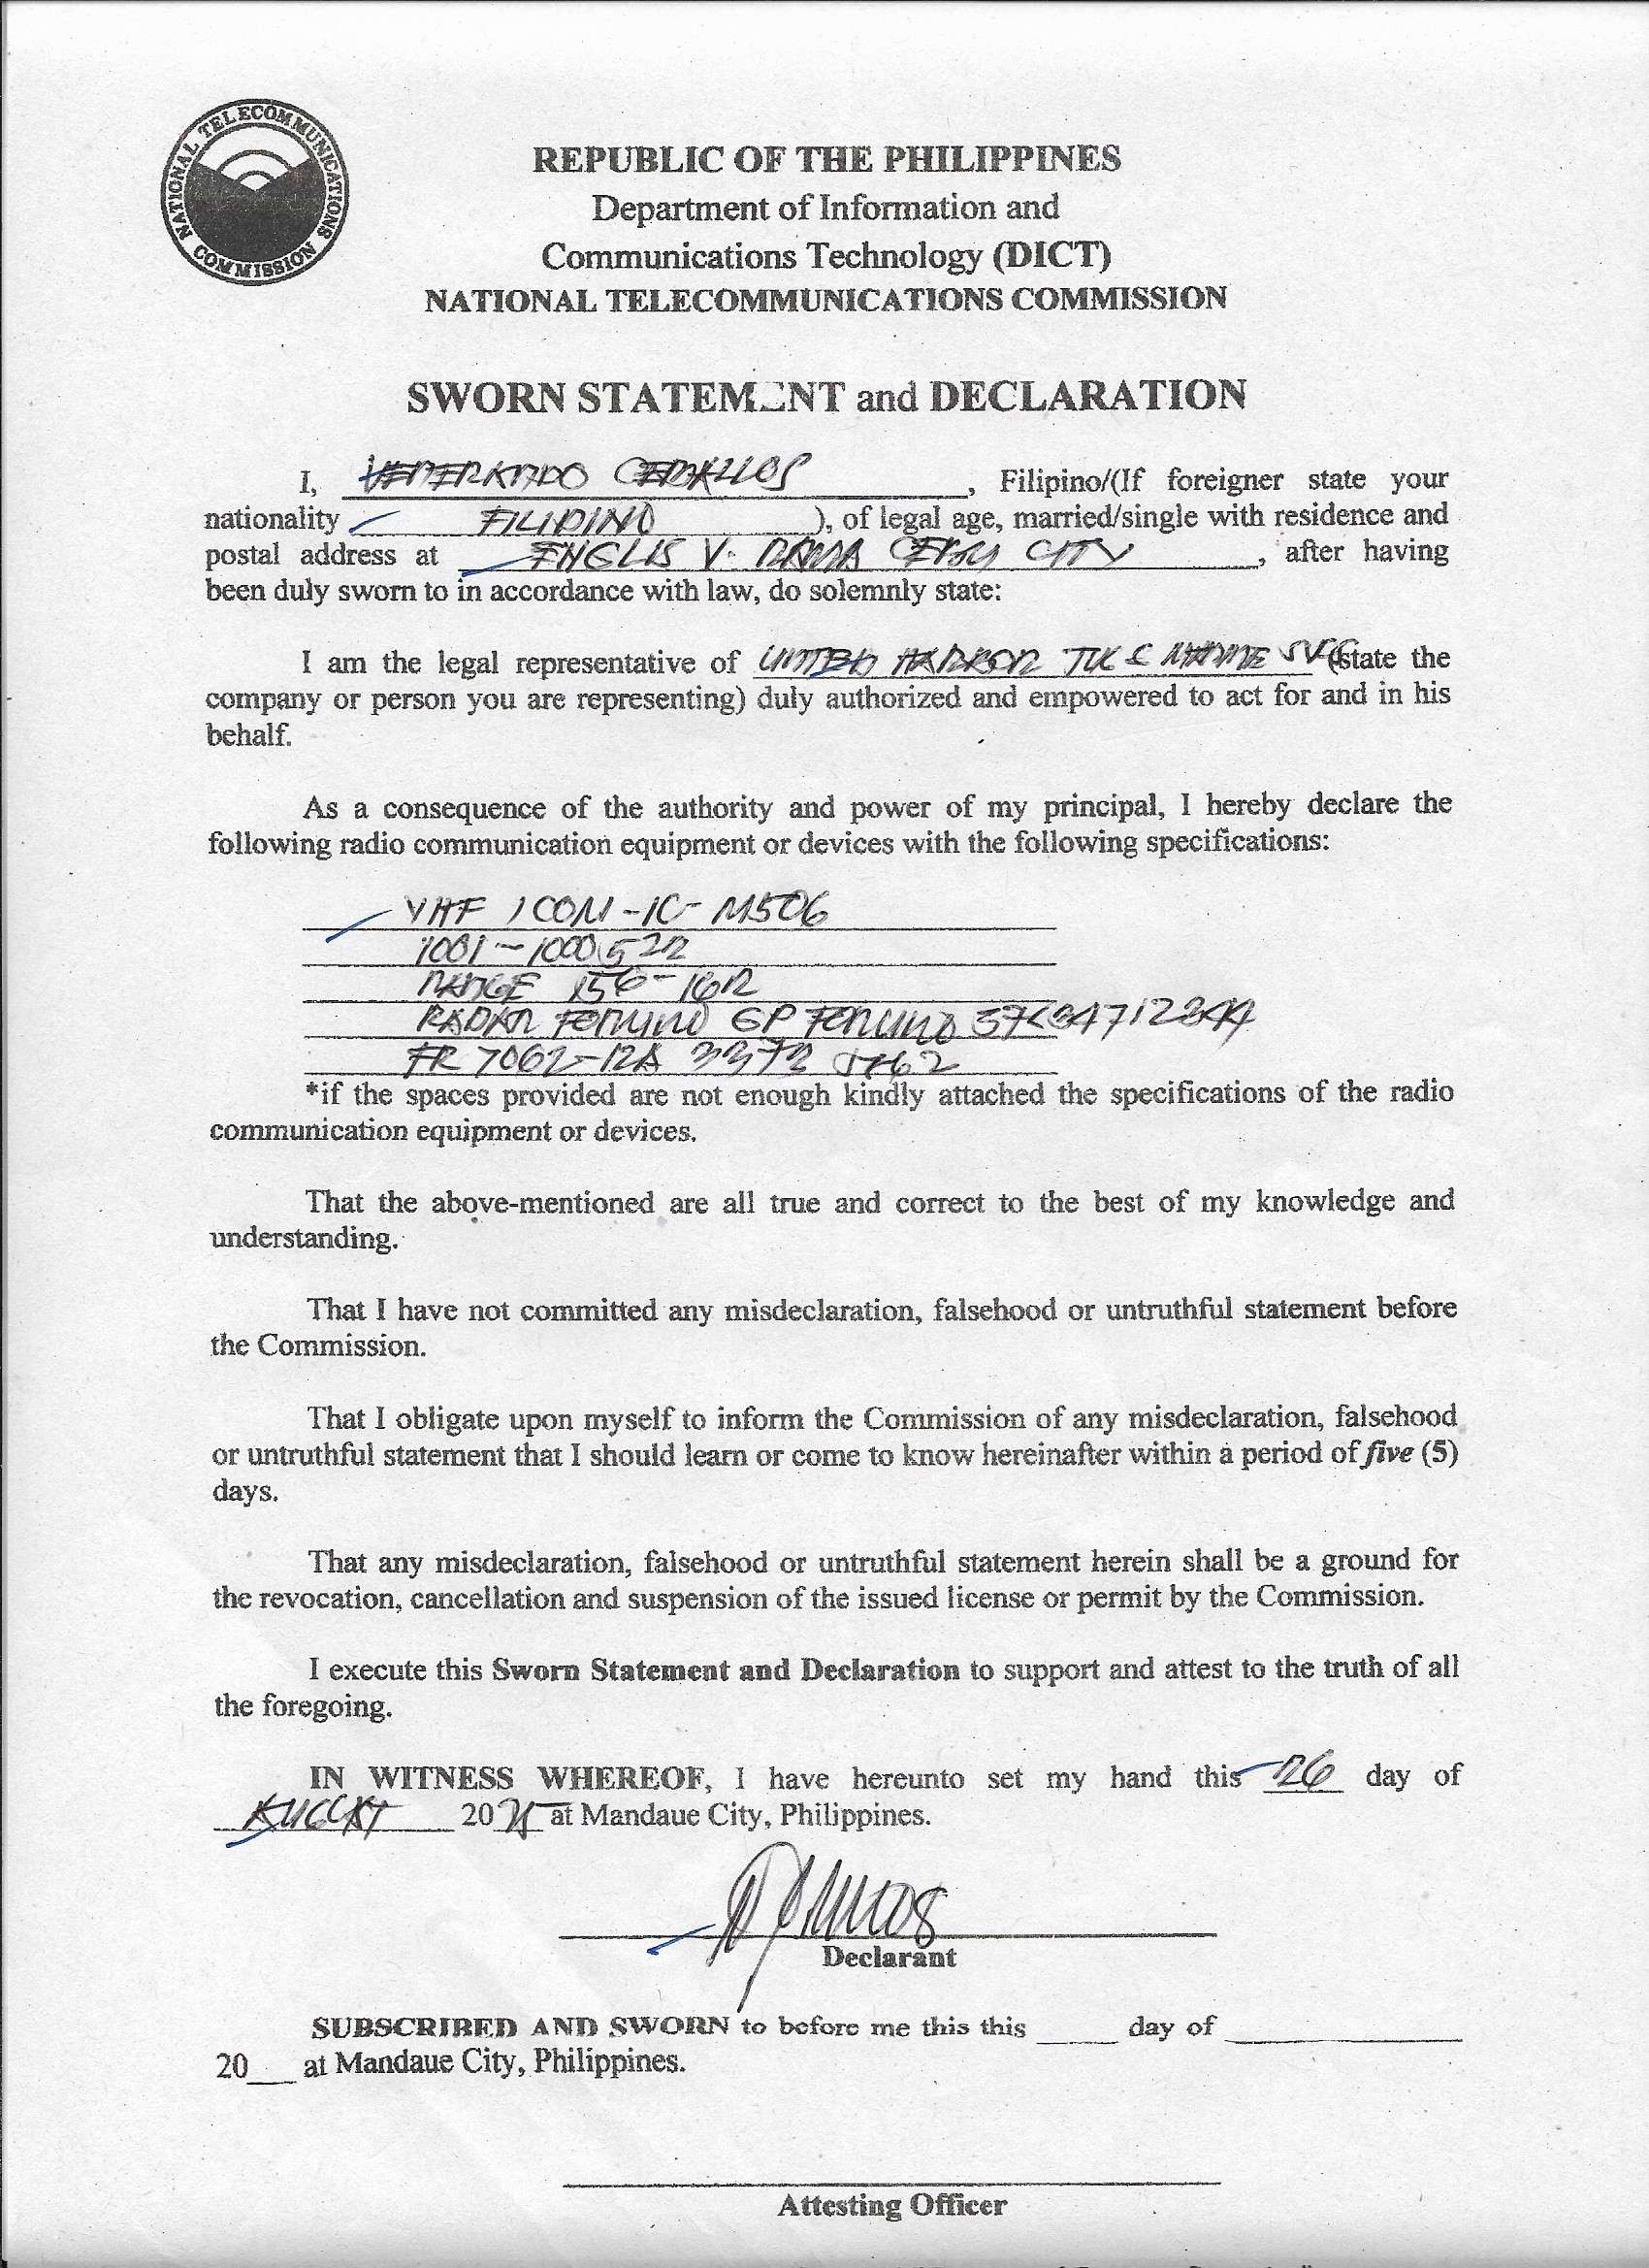 NATIONAL TELECOMMUNICATIONS COMMISSION
REPUBLIC OF THE PHILIPPINES
Department of Information and
Communications Technology (DICT)
NATIONAL TELECOMMUNICATIONS COMMISSION
SWORN STATEMENT and DECLARATION
I, VENERANDO CEBALLOS, Filipino/(If foreigner state your
nationality FILIPINO), of legal age, married/single with residence and
postal address at ENGLIS V. RAMA CEBU CITY, after having
been duly sworn to in accordance with law, do solemnly state:
I am the legal representative of UNITED HARBOR TUG & MARINE SVCS (state the
company or person you are representing) duly authorized and empowered to act for and in his
behalf.
As a consequence of the authority and power of my principal, I hereby declare the
following radio communication equipment or devices with the following specifications:
VHF ICOM-IC-M506
RANGE 156-162
RADAR
FR 7062-12A
*if the spaces provided are not enough kindly attached the specifications of the radio
communication equipment or devices.
That the above-mentioned are all true and correct to the best of my knowledge and
understanding.
That I have not committed any misdeclaration, falsehood or untruthful statement before
the Commission.
That I obligate upon myself to inform the Commission of any misdeclaration, falsehood
or untruthful statement that I should learn or come to know hereinafter within a period of five (5)
days.
That any misdeclaration, falsehood or untruthful statement herein shall be a ground for
the revocation, cancellation and suspension of the issued license or permit by the Commission.
I execute this Sworn Statement and Declaration to support and attest to the truth of all
the foregoing.
IN WITNESS WHEREOF, I have hereunto set my hand this 26 day of
AUGUST 2025 at Mandaue City, Philippines.
Declarant
SUBSCRIBED AND SWORN to before me this this ____ day of ____
20__ at Mandaue City, Philippines.
Attesting Officer